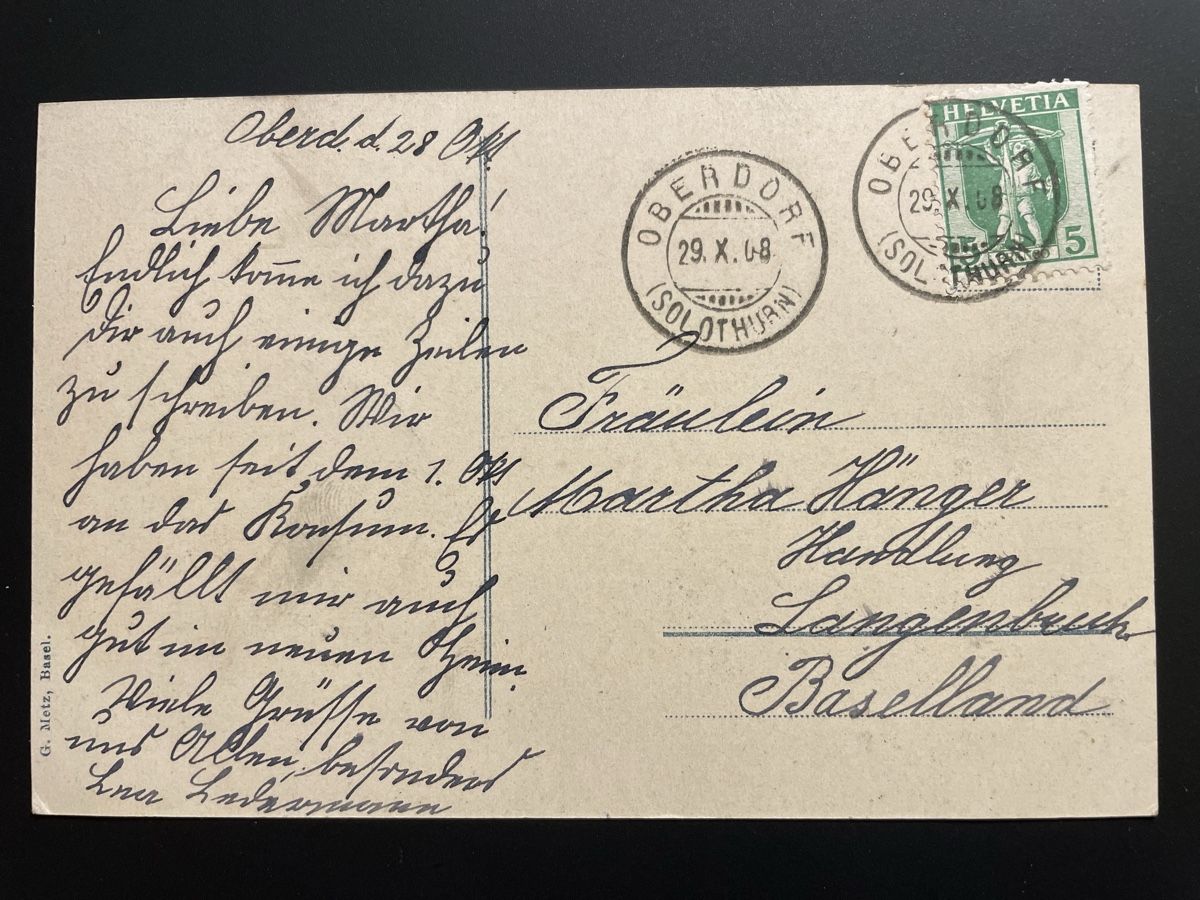 Oberd. d. 28 Okt.
Liebe Martha!
Endlich kome ich dazu
Dir auch einige Zeilen
zu schreiben. Wir
haben seit dem 1. Okt
an das Konsum. Es
gefällt mir auch
gut im neuen Heim.
Viele Grüsse von
uns Allen, besonders
Lea Ledermann
G. Metz, Basel.
OBERDORF
29. X. 08
(SOLOTHURN)
HELVETIA
5
OBERDORF
29. X. 08
(SOLOTHURN)
Fräulein
Martha Hänger
Handlung
Langenbruck
Baselland